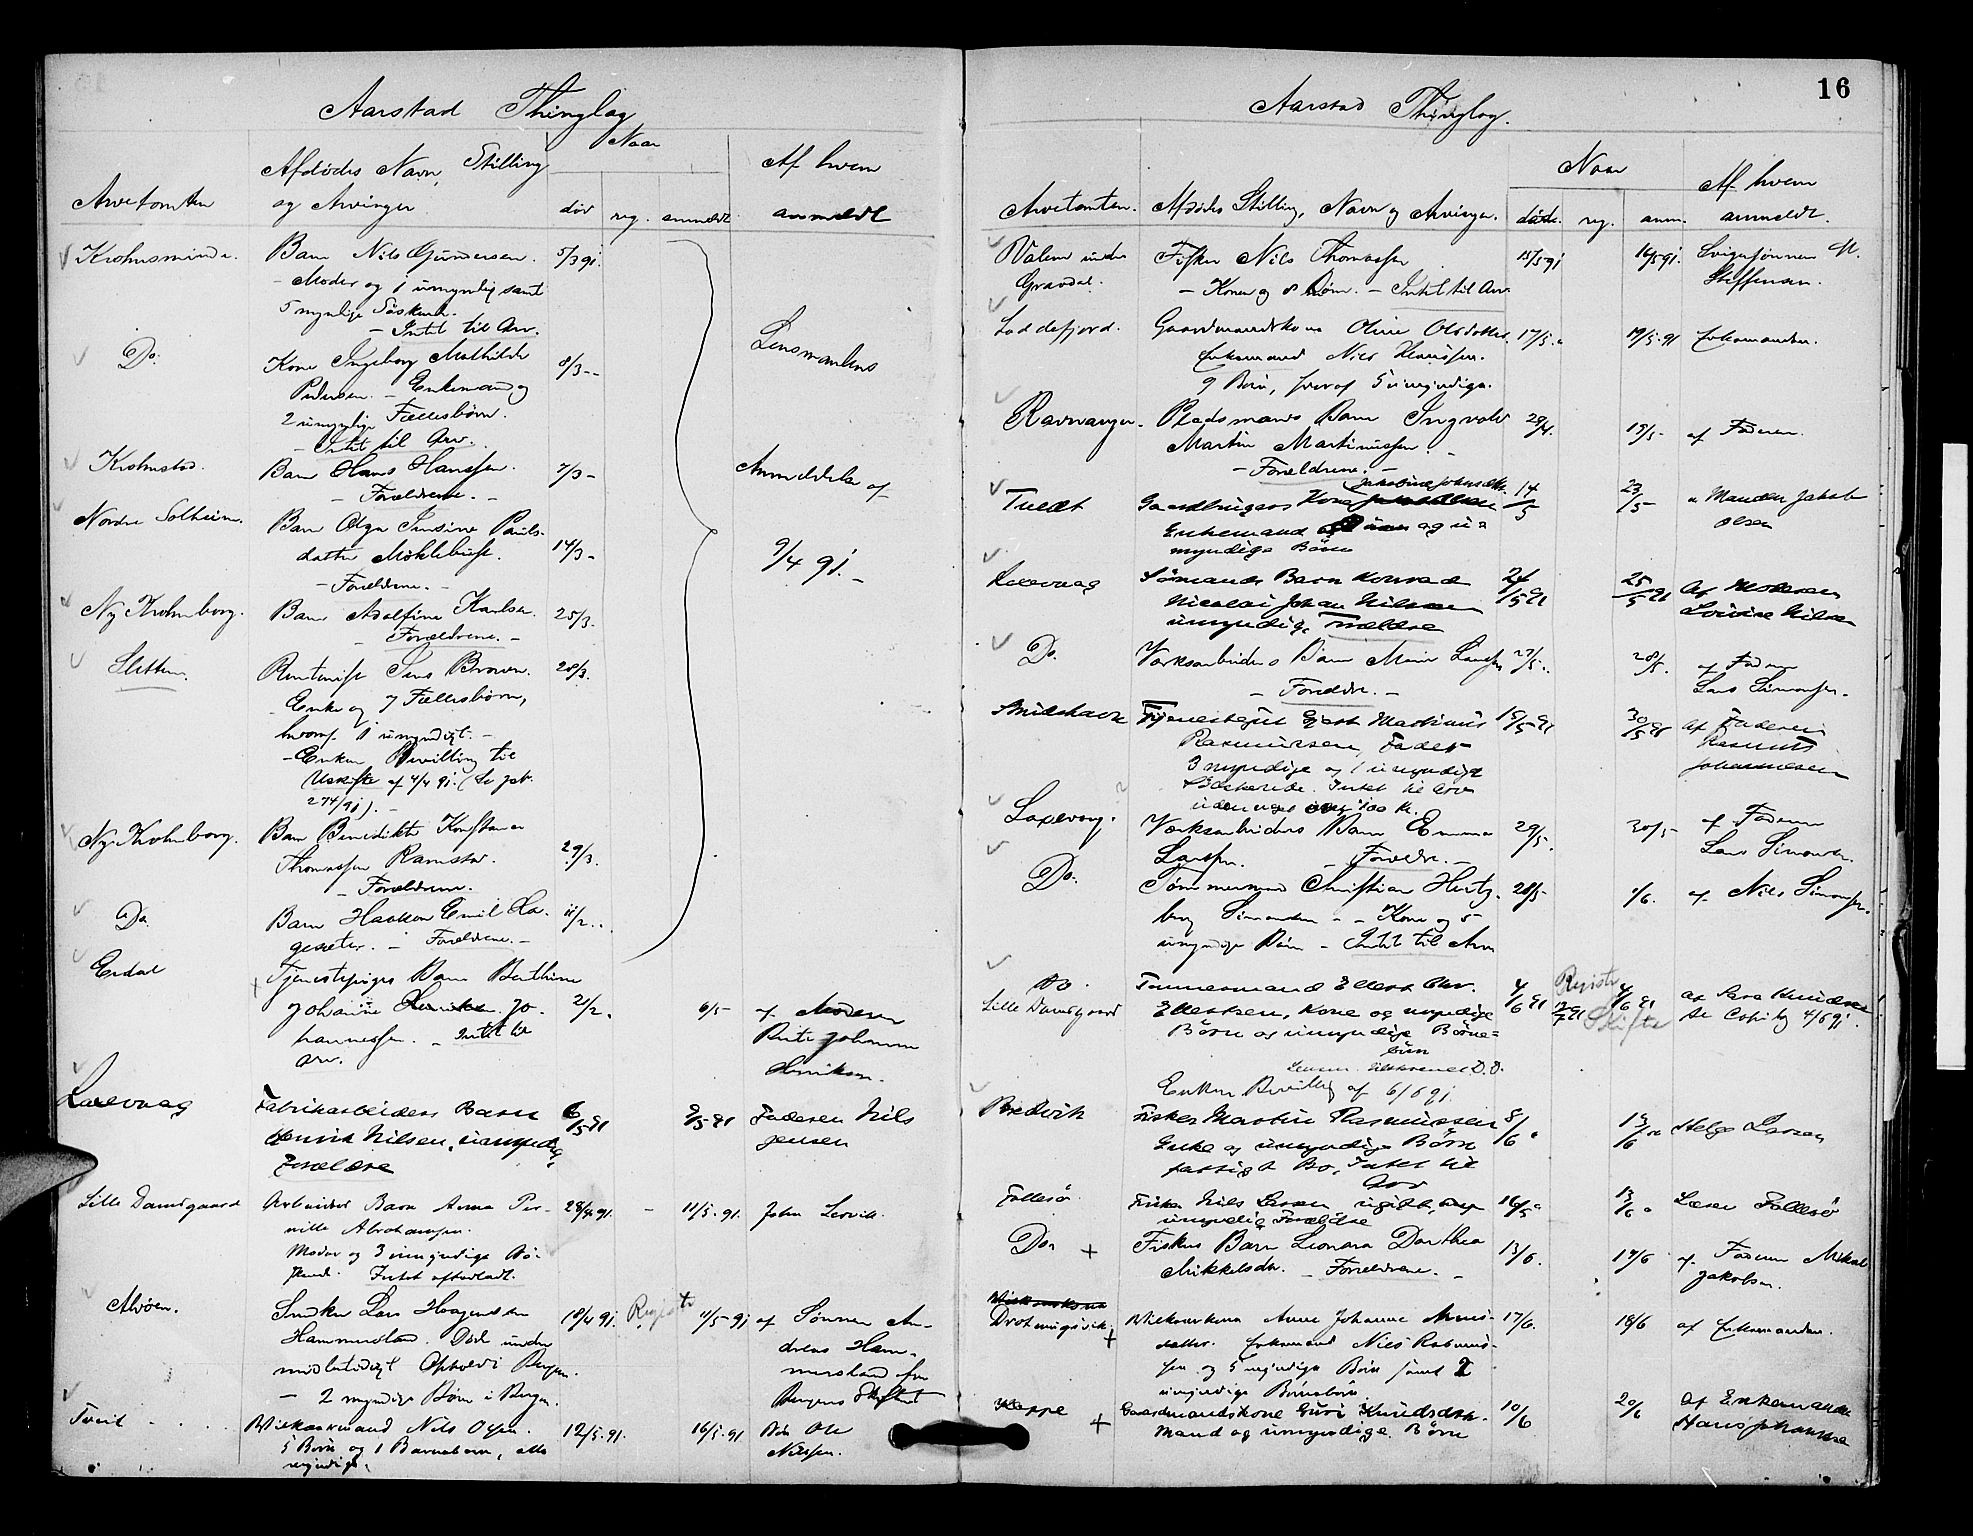 Aarstad Thinglag
Afdødes Navn, Stilling
Naar
Af hvem
Arvetomten
og Arvinger
død
reg.
anmeldt
anmeldt
Krohnsminde.
Barn Nils Gundersen.
5/3 91.
- Moder og 1 umyndig samt
5 myndige Søskende.
- Intet til Arv.
Lensmandens
Anmeldelse af
9/4 91. -
Do.
Kone Ingeborg Mathilde
8/3 - -
Pedersen. - Enkemand og
2 umyndige Fællesbørn.
- Intet til Arv.
Krohnstad.
Barn Hans Hanssen.
7/3 -
- Forældrene. -
Nordre Solheim.
Barn Olga Jensine Pauls-
datter Møklebust.
14/3 -
- Forældrene. -
Ny Krohnborg.
Barn Adolfine Karlsen.
25/3.
- Forældrene. -
Sletten.
Rentenist Jens Brown.
28/3.
- Enke og 7 Fællesbørn,
hvoraf 1 umyndigt. -
- Enken Bevilling til
Uskifte af 4/4 91. (Se Jab.
274/91). -
Ny Krohnborg.
Barn Benedikte Konstance
Thomassen Ramstad.
29/3.
- Forældrene.
Do.
Barn Haakon Emil
11/2 . .
- Forældrene. -
Erdal
Tjenestepiges Barn Berthine
Johanne Jo-
21/2 .
6/5 -
af Moderen
hannessen. - Intet til
Arv.
Johanne
Henriksen.
Laxevaag
Fabrikarbeiders Barn
6/5 91
9/5 91
Faderen Nils
Henrik Nilsen, umyndig
Jensen
Forældre
Lille Damsgaard
Arbeider Barn Anna Per-
28/4 91.
-
11/5 . 91.
John
nille Abrahamsen.
Moder og 3 umyndige Sø-
skend. Intet efterladt.
Alvøen.
Snedker Lars Haagensen
18/4 91.
Registr
11/5 - 91
af Sønnen An-
Hammersland. Død under
dreas Ham-
midlertidigt Ophold i Bergen.
mersland fra
- 2 myndige Børn i Bergen.
Bergens Skifteret
Tveit . . .
Nils Olsen.
12/5 . 91.
16/5 . 91
Ole
5 Børn og 1 Barnebarn, alle
Nilssen.
myndige.
16
Aarstad Thinglag.
Naar
Af hvem
Arvetomten.
Afdødes Stilling, Navn og Arvinger.
døde.
reg.
anm.
anmeldt.
under
Fisker Nils Thomassen
15/5 91
16/5 91.
Svigersønnen M.
Gravdal.
- Kone og 8 Børn. - Intet til Arv.
Steffensen.
Loddefjord.
Gaardmandskone Oline Olsdatter.
17/5 .
19/5 . 91
Enkemanden.
Enkemand Nils Hanssen.
9 Børn, hvoraf 5 umyndige.
Ravnanger.
Pladsmands Barn Ingvald
29/4.
15/5 -
af Faderen.
Martin Martinussen. -
- Forældrene. -
Tvedt
Gaardbrugers Kone
14/5
23/5 -
Manden Jakob
Olsen
Enkemand og u-
myndige Børn
Laxevaag
Sømands Barn Konrad
24/5 91
25/5 91
Af Moderen
Nicolai Johan Nilsen
Lovise Nilsen
umyndig, Forældre
Do.
Værksarbeiders Barn Marie Larssen
27/5 .
28/5.
af Faderen
- Forældre. -
Lars Simonsen.
Mildehavn
Tjenestegut Gjert Martinus
15/5 91
30/5 91
af Faderen
Rasmussen, Fader
Rasmus
3 myndige og 1 umyndigt
Johannesen
Søskende. Intet til Arv
100 kr.
Laxevaag.
Værksarbeiders Barn Emma
29/5.
30/5 -
af Faderen
Larssen. - Forældre. -
Lars Simonsen.
Do.
Tømmermand Christian Hertz-
28/5 -
1/6.
af Nils Simonsen.
berg Simonsen - - Kone og 5
umyndige Børn - Intet til Arv
Do.
Tømmermand Ellert Chr.
4/6 91
Registr
4/6 91
af Sara Knudsen
Lille Damsgaard
Ellertsen, Kone og myndige
Skifte
se Copibog 4/6 91.
Børn og umyndige Børne-
børn
Enken Bevilling af 6/6 91
Bredvik
Fisker Martin Rasmussen
8/6
13/6
Helge Larsen
Enke og umyndige Børn
fattigt Bo, Intet til
Arv
Follesø.
Fisker Nils Larsen ugift,
16/5
13/6
Lasse Follesø
umyndig Forældre
Do.
+
Fiskers Barn Leonora Dorthea
13/6.
17/6
af Faderen Mikal
Mikkelsdr. - Forældrene. -
Jakobsen.
Drotningsvik.
+
Anne Johanne Arnes-
17/6.
18/6
af Enkemanden.
datter. Enkemand Nils Rasmus-
sen og 5 myndige Børn samt 2
umyndige Børnebørn
Kleppe
+
Gaardmandskone Guri Knudsdtr.
10/6
20/6
af Enkemanden
Mand og umyndige Børn
Hans Johannesen